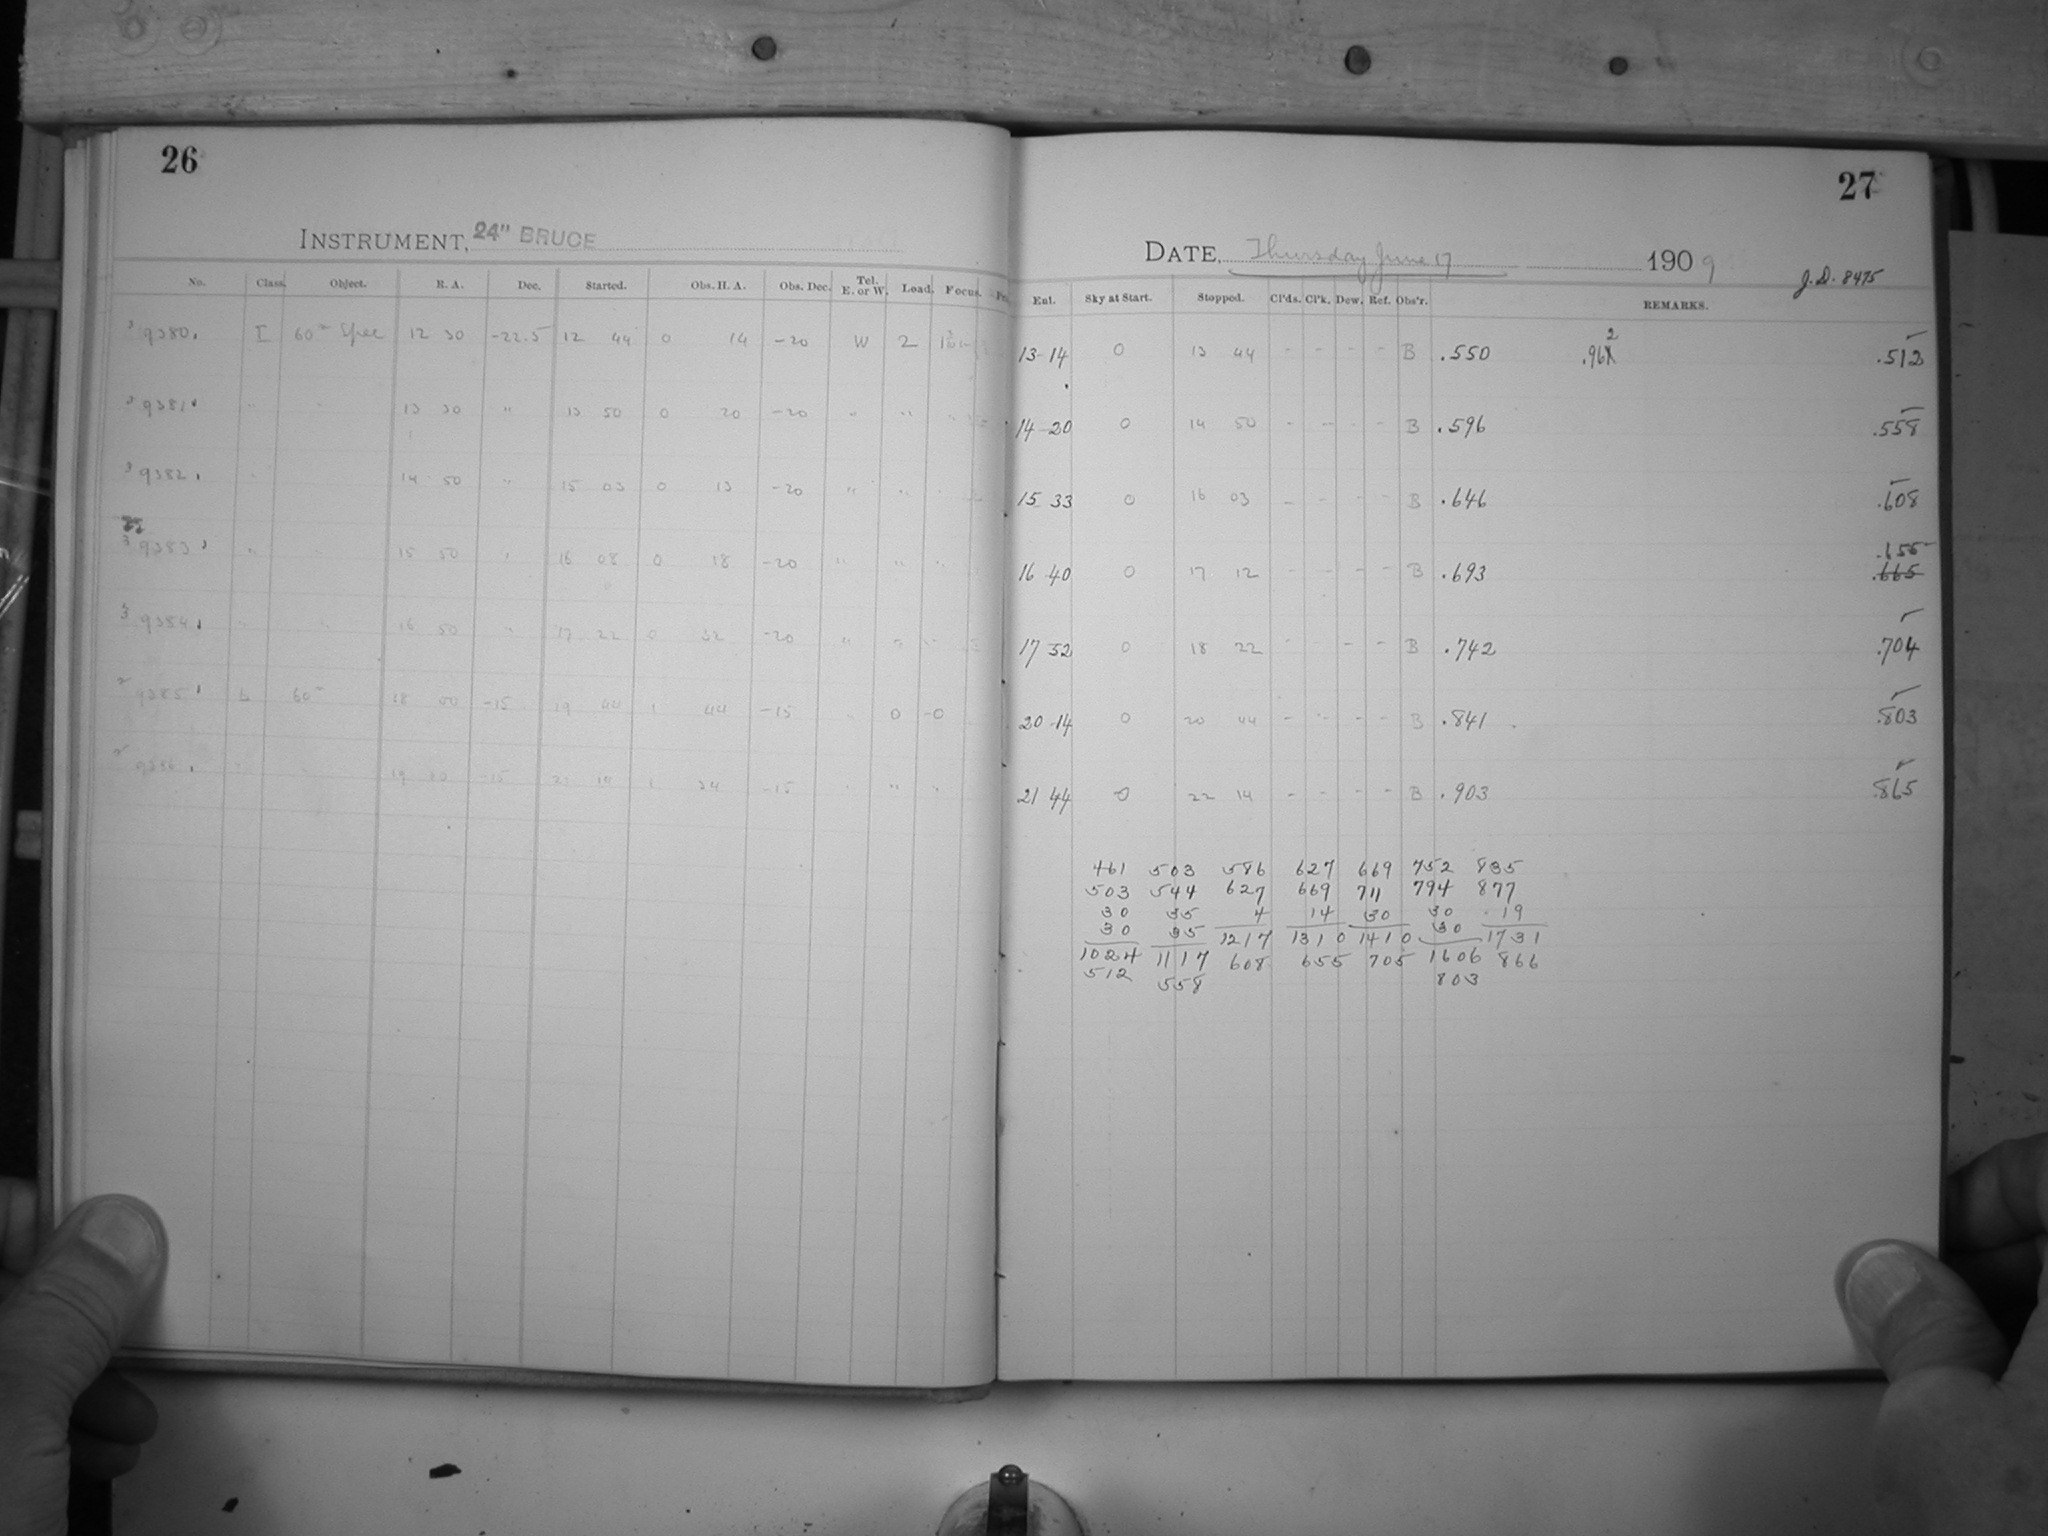 26
INSTRUMENT, 24" BRUCE
No. Class. Object. R. A. Dec. Started. Obs. H. A. Obs. Dec. Tel. E. or W. Load. Focus.
3 9380 I 60m Spec 12 30 -22.5 12 44 0 14 -20 W 2
3 9381 " " 13 30 " 13 50 0 20 -20 " " "
3 9382 " 14 50 " 15 03 0 13 -20 " " "
3 9383 " " 15 50 " 16 08 0 18 -20 " " "
3 9384 " " 16 50 " 17 22 0 32 -20 " " "
2 9385 L 60m 18 00 -15 19 44 1 44 -15 " 0 -0
2 9386 " " 19 -15 1 34 -15 " " "
27
DATE, Thursday June 17 1909
J.D. 8475
Ent. Sky at Start. Stopped. Cl'ds. Cl'k. Dew. Ref. Obs'r. REMARKS.
13-14 0 13 44 - - - - B .550 .962 .512
14-20 0 14 50 - - - - B .596 .558
15 33 0 16 03 - - - - B .646 .608
.655
16 40 0 17 12 - - - - B .693 .665
17 52 0 18 22 - - - - B .742 .704
20-14 0 20 44 - - - - B .841 .803
21 44 0 22 14 - - - - B .903 .865
461 503 586 627 669 752 835
503 544 627 669 711 794 877
30 35 4 14 30 30 19
30 35 1217 1310 1410 30 1731
1024 1117 608 655 705 1606 866
512 558 803